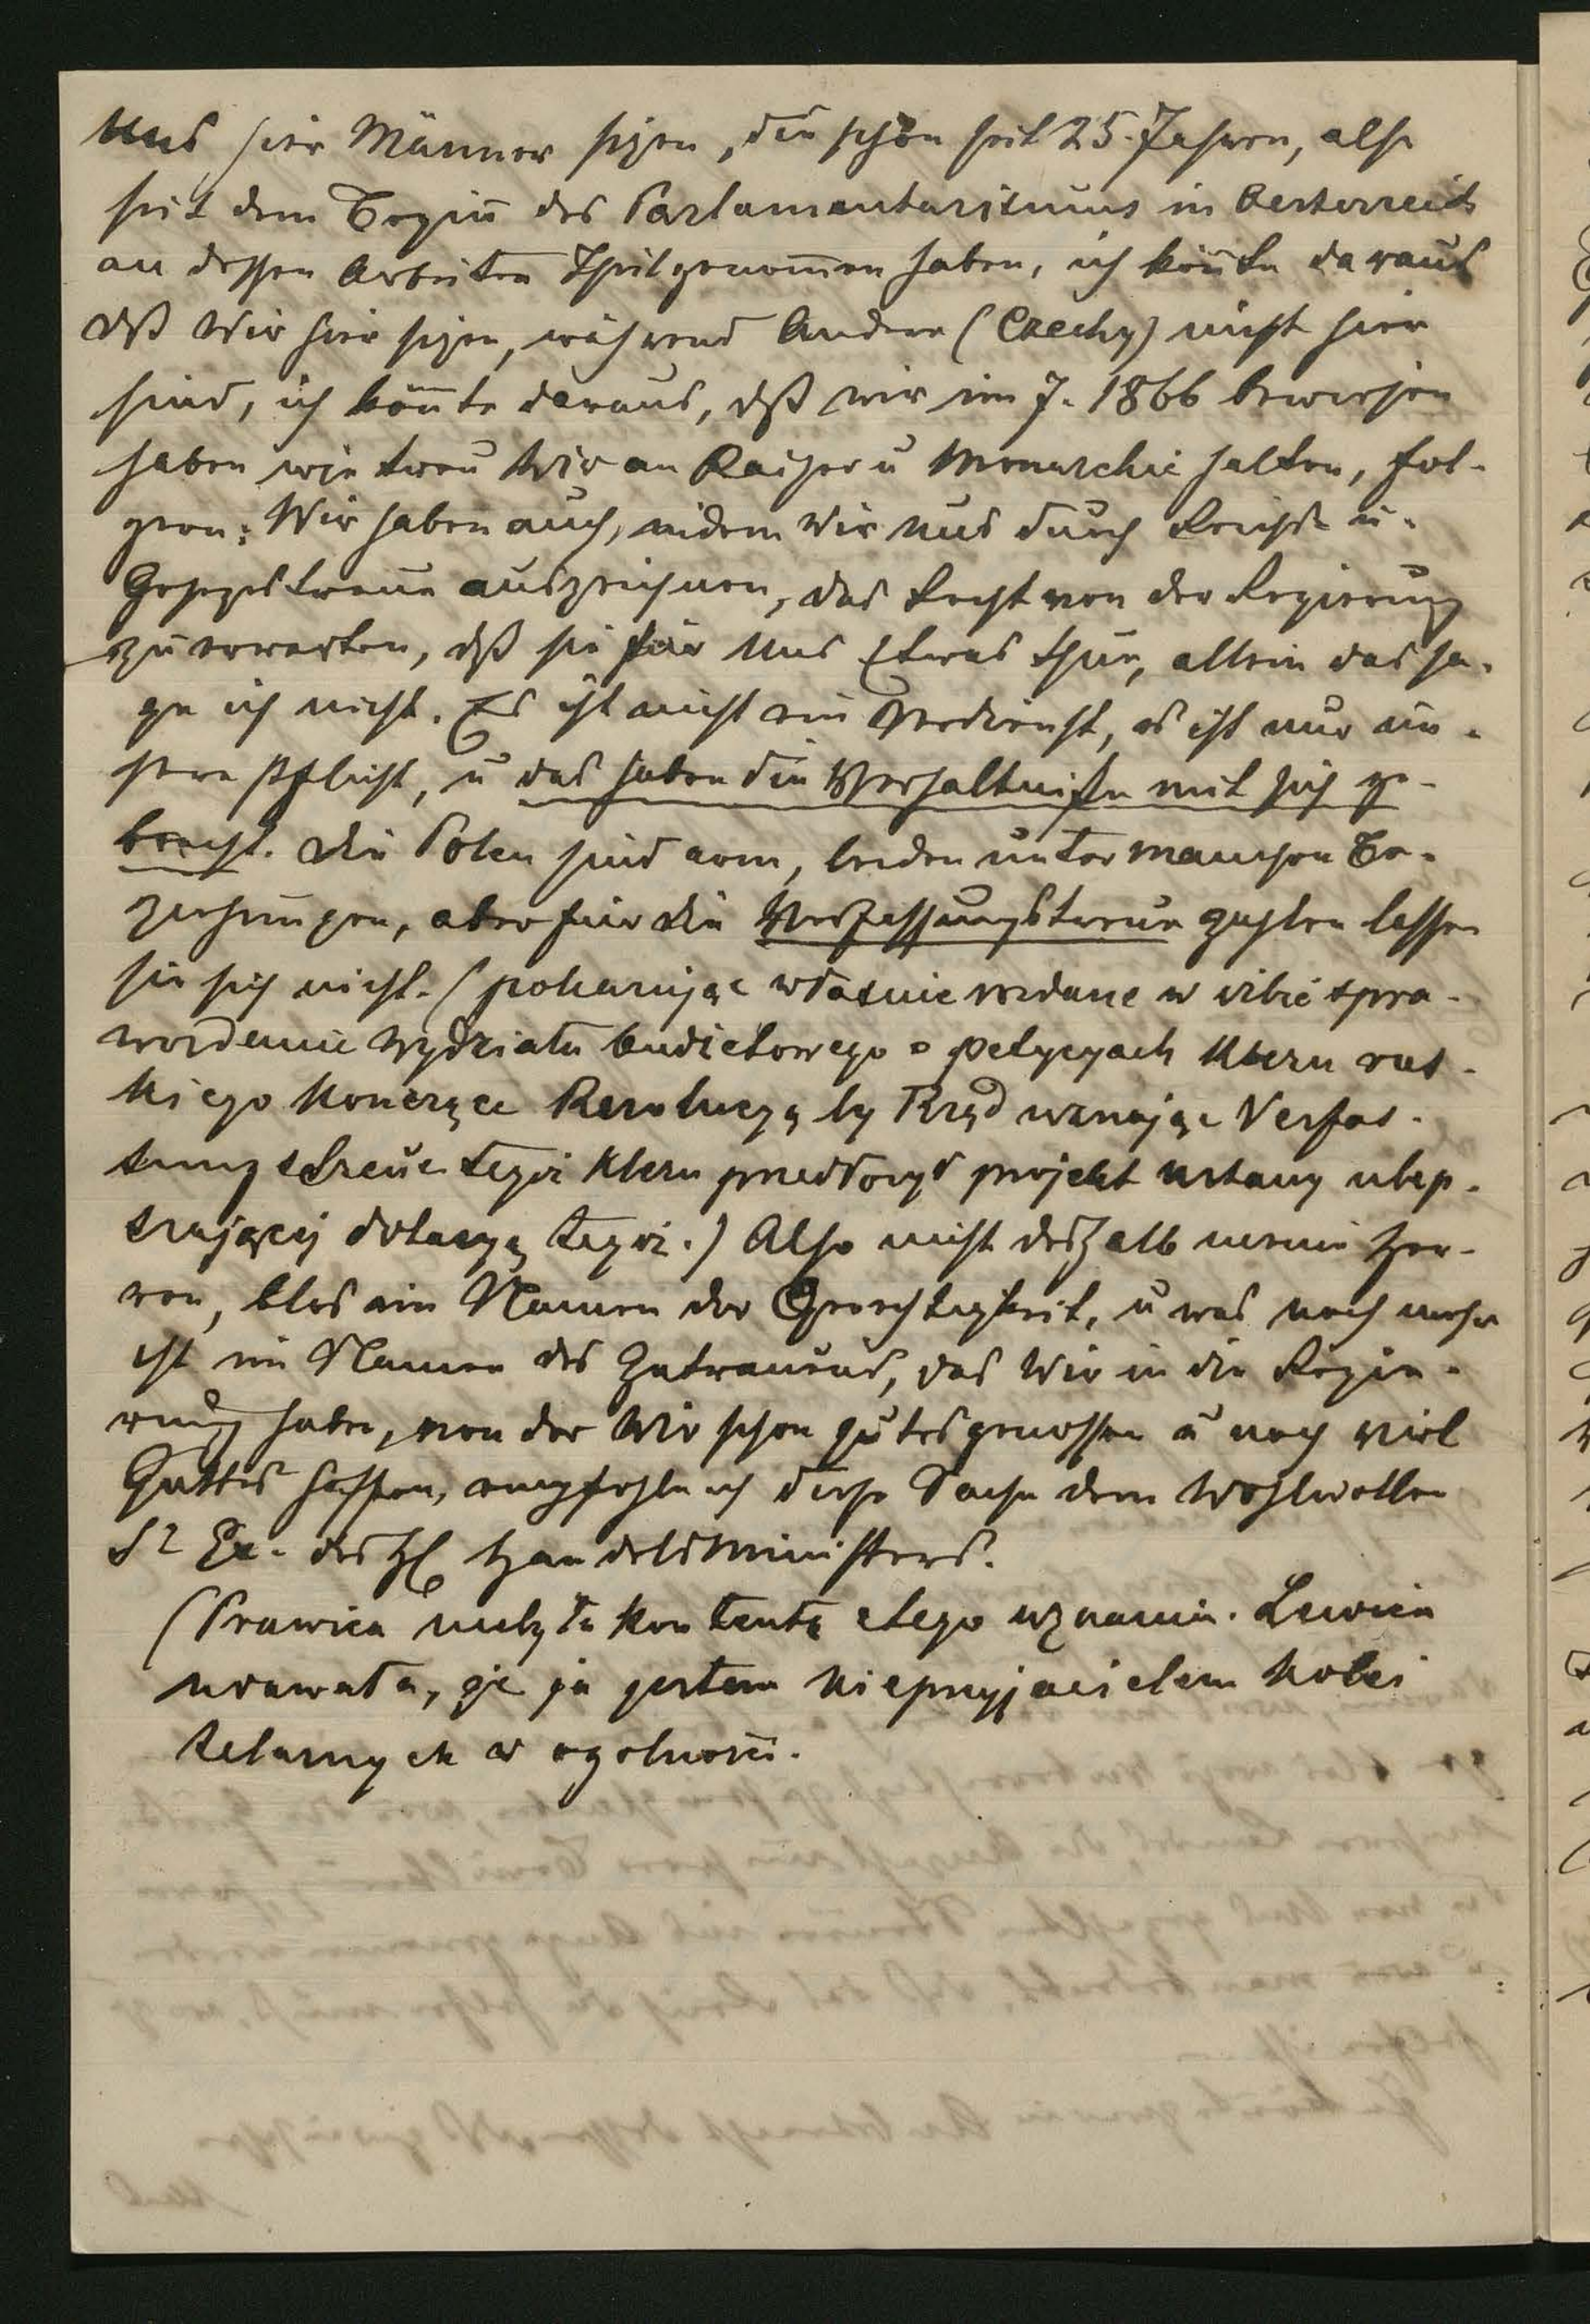 Uns hier Männer sizen, die schon seit 25. Jahren, also
seit dem Begiñ des Parlamentarismus in Oesterreich
an dessen Arbeiten Theil genom̃en haben, ich kön̄te daraus
dß Wir hier sizen, während Andere (Czechy) nicht hier
sind, ich kön̄te daraus, dß wir im J. 1866 bewiesen
haben wie treu Wir an Kaiser u Monarchie halten, fol-
gern: Wir haben auch, indem Wir uns durch Reichs- u-
Gesezestreue auszeichnen, das Recht von der Regierung
zu erwarten, dß sie für Uns Etwas thue, allein das sa-
ge ich nicht. Es ist nicht ein Verdienst, es ist nur un-
sere Pflicht, u das haben die Verhältniße mit sich ge-
bracht. Die Polen sind arm, leiden unter manchen Be-
ziehungen, aber für die Verfassungstreue zahlen lassen
sie sich nicht. (pokazując właśnie rozdane w izbie spra-
wozdanie wydziału budżetowego o petycyach kleru rus-
kiego kończące Rezolucyą by Rząd uznając Verfas-
sungstreue tegoż kleru przedłożył projekt ustawy ulep-
szającej dotacyą tegoż.) Also nicht deshalb meine Her-
ren, blos im Namen der Gerechtigkeit, u was noch mehr
ist im Namen des Zutrauens, das Wir in die Regie-
rung haben, von der Wir schon gutes genossen u noch viel
Guttes hoffen, empfehle ich diese Sache dem Wohlwollen
Sr Ex. des H Handelsministers.
(Prawica niebyła kontentą z tego uznania. Lewica
uważała, że ja jestem nieprzyjacielem kolei
żelaznych w ogolności.